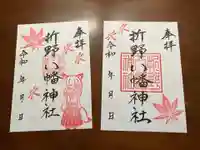 奉拝
折野八幡神社
令和 年 月 日
奉拝
折野八幡神社
令和 年 月 日